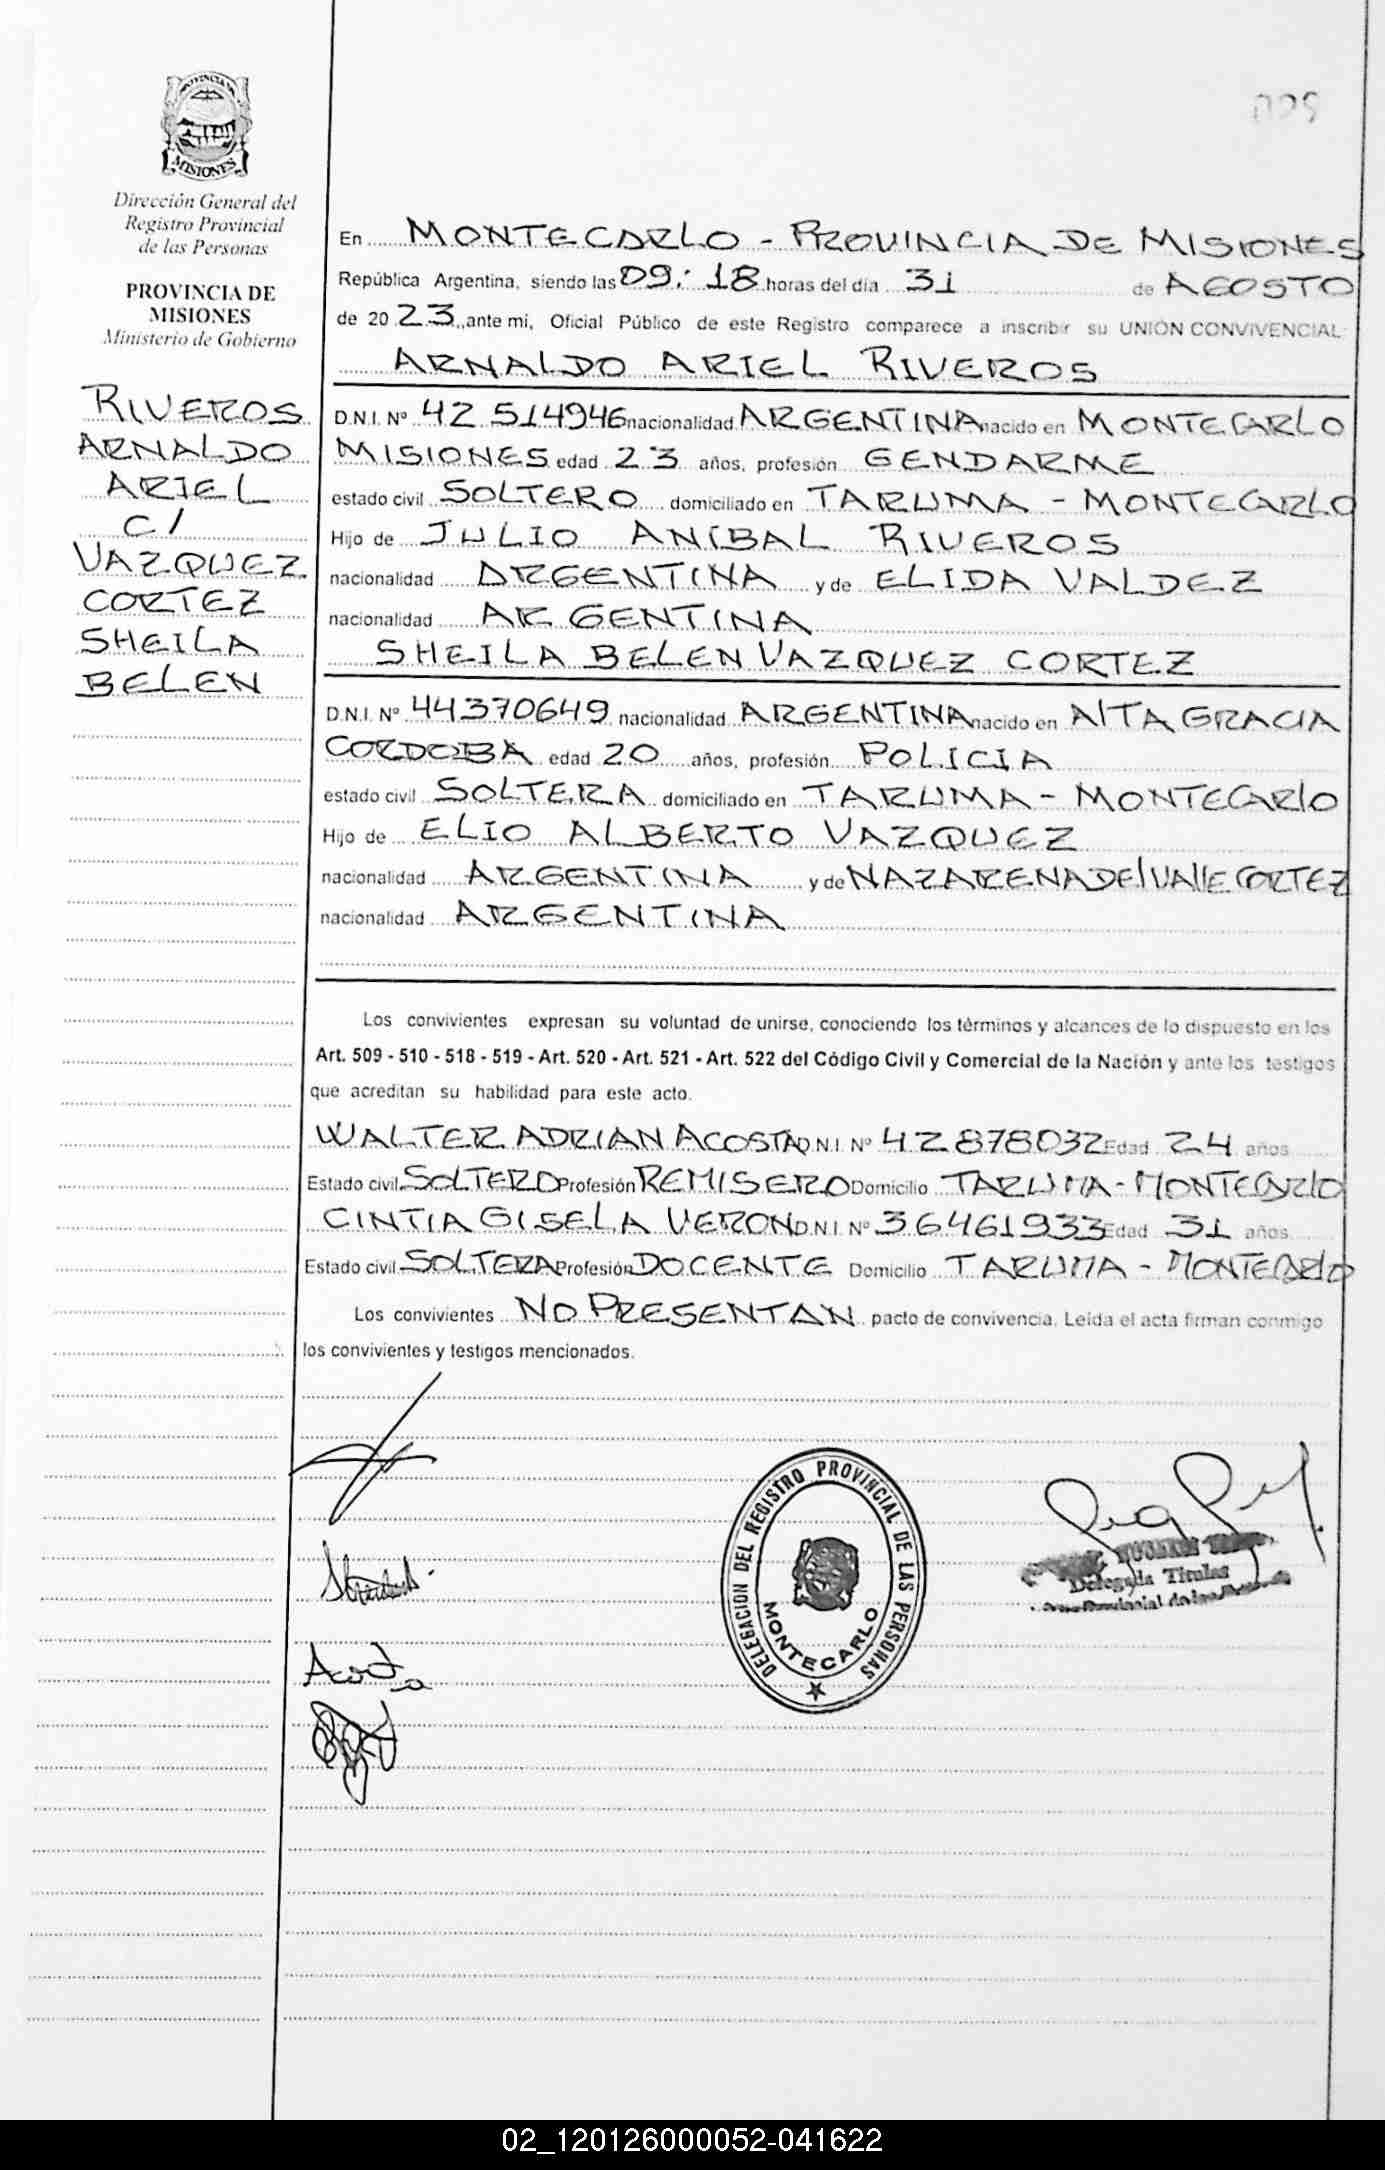 PROVINCIA DE
MISIONES
Dirección General del
Registro Provincial
de las Personas
PROVINCIA DE
MISIONES
Ministerio de Gobierno
RIVEROS
ARNALDO
ARIEL
C/
VAZQUEZ
CORTEZ
SHEILA
BELEN
En MONTECARLO - PROVINCIA DE MISIONES
República Argentina, siendo las 09:18 horas del día 31 de AGOSTO
de 2023, ante mi, Oficial Público de este Registro comparece a inscribir su UNIÓN CONVIVENCIAL:
ARNALDO ARIEL RIVEROS
D.N.I. Nº 42 514946 nacionalidad ARGENTINA nacido en MONTECARLO
MISIONES edad 23 años, profesión GENDARME
estado civil SOLTERO domiciliado en TARUMA - MONTECARLO
Hijo de JULIO ANIBAL RIVEROS
nacionalidad ARGENTINA y de ELIDA VALDEZ
nacionalidad ARGENTINA
SHEILA BELEN VAZQUEZ CORTEZ
D.N.I. Nº 44370649 nacionalidad ARGENTINA nacido en AlTA GRACIA
CORDOBA edad 20 años, profesión POLICIA
estado civil SOLTERA domiciliado en TARUMA - MONTECARlO
Hijo de ELIO ALBERTO VAZQUEZ
nacionalidad ARGENTINA y de NAZARENA DEl VAllE CORTEZ
nacionalidad ARGENTINA
Los convivientes expresan su voluntad de unirse, conociendo los términos y alcances de lo dispuesto en los
Art. 509 - 510 - 518 - 519 - Art. 520 - Art. 521 - Art. 522 del Código Civil y Comercial de la Nación y ante los testigos
que acreditan su habilidad para este acto.
WALTER ADRIAN ACOSTA D.N.I. Nº 42 878032 Edad 24 años
Estado civil SOLTERO Profesión REMISERO Domicilio TARUMA - MONTECARlO
CINTIA GISELA VERON D.N.I. Nº 36461933 Edad 31 años
Estado civil SOLTERA Profesión DOCENTE Domicilio TARUMA - MONTECARlO
Los convivientes NO PRESENTAN pacto de convivencia. Leída el acta firman conmigo
los convivientes y testigos mencionados.
DELEGACION DEL REGISTRO PROVINCIAL DE LAS PERSONAS
MONTECARLO
Delegada Titular
Acosta
02_120126000052-041622